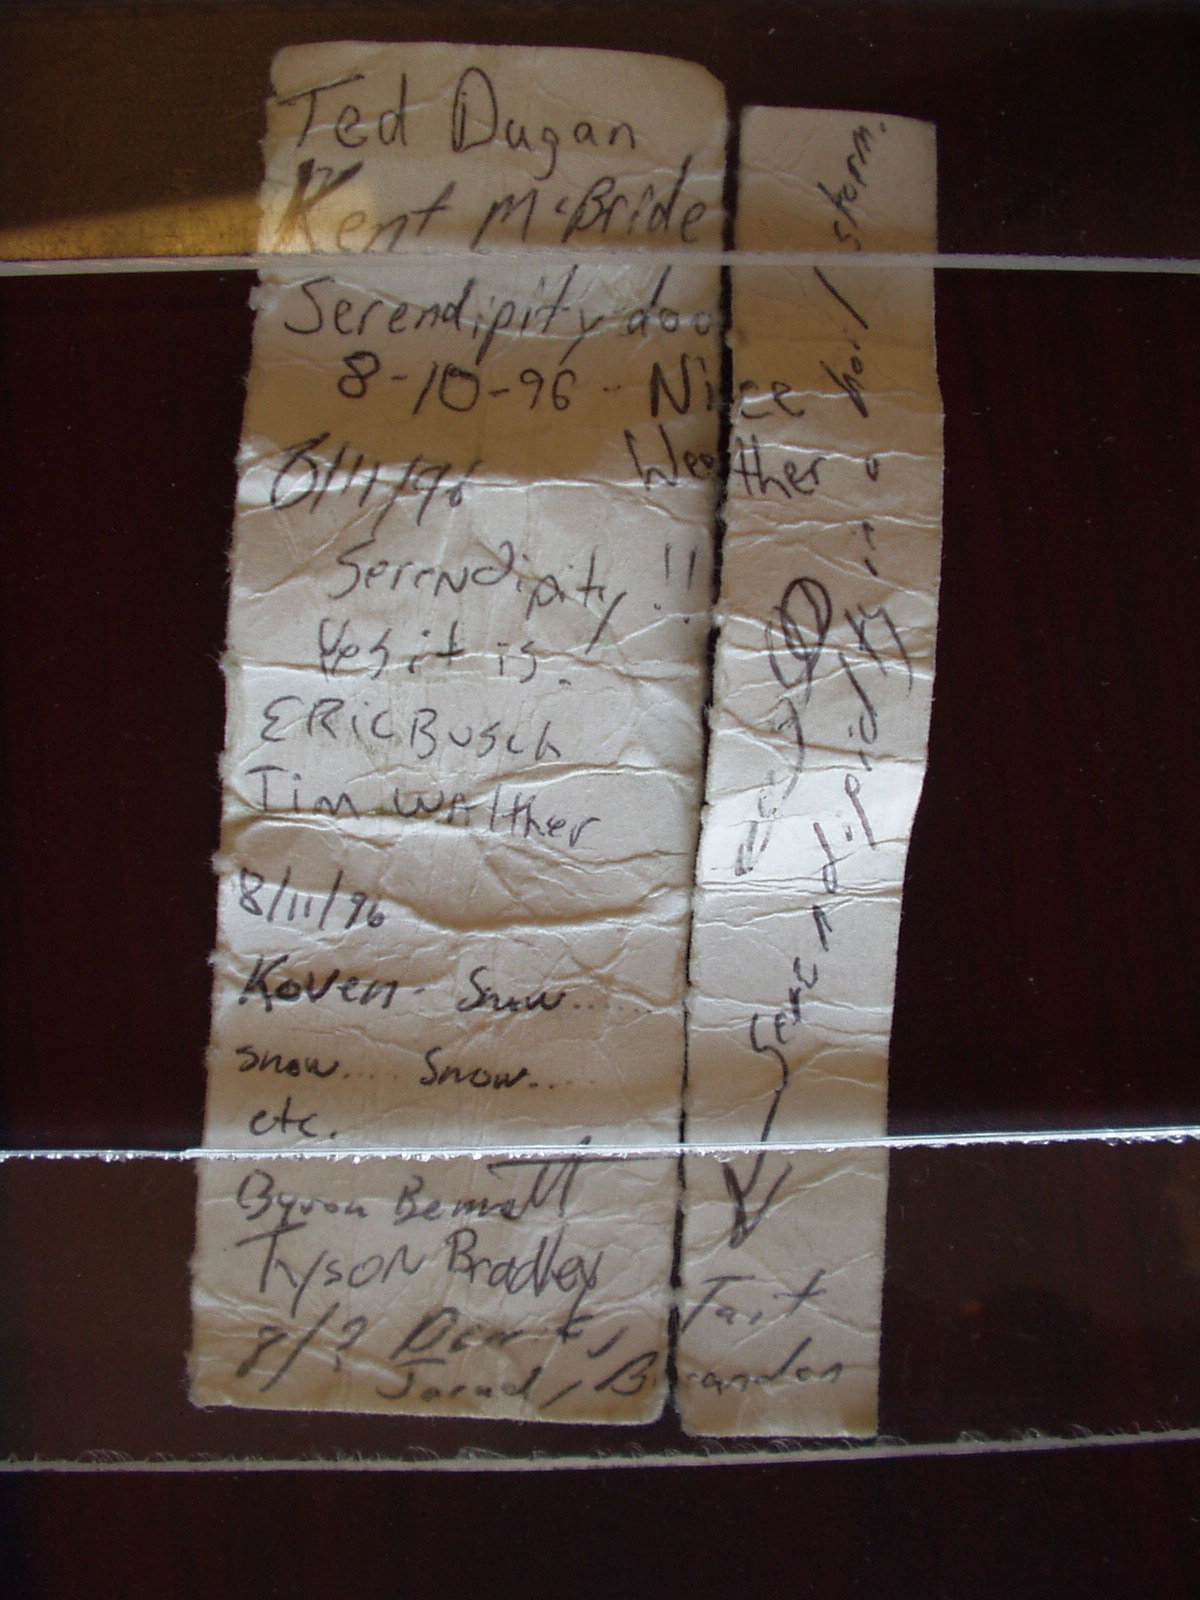 Ted Dugan
Kent McBride
Serendipity doo
8-10-96 -- Nice
Weather
8/11/96
Serendipity!!
Yes it is.
ERic Busch
Tim Walther
8/11/96
Koven - Snow......
snow.... Snow....
etc.
Byron Bennett
Tyson Bradley
8/? Derrick, Tait
Jarad, Brandon
Serendipidity in a hail storm.